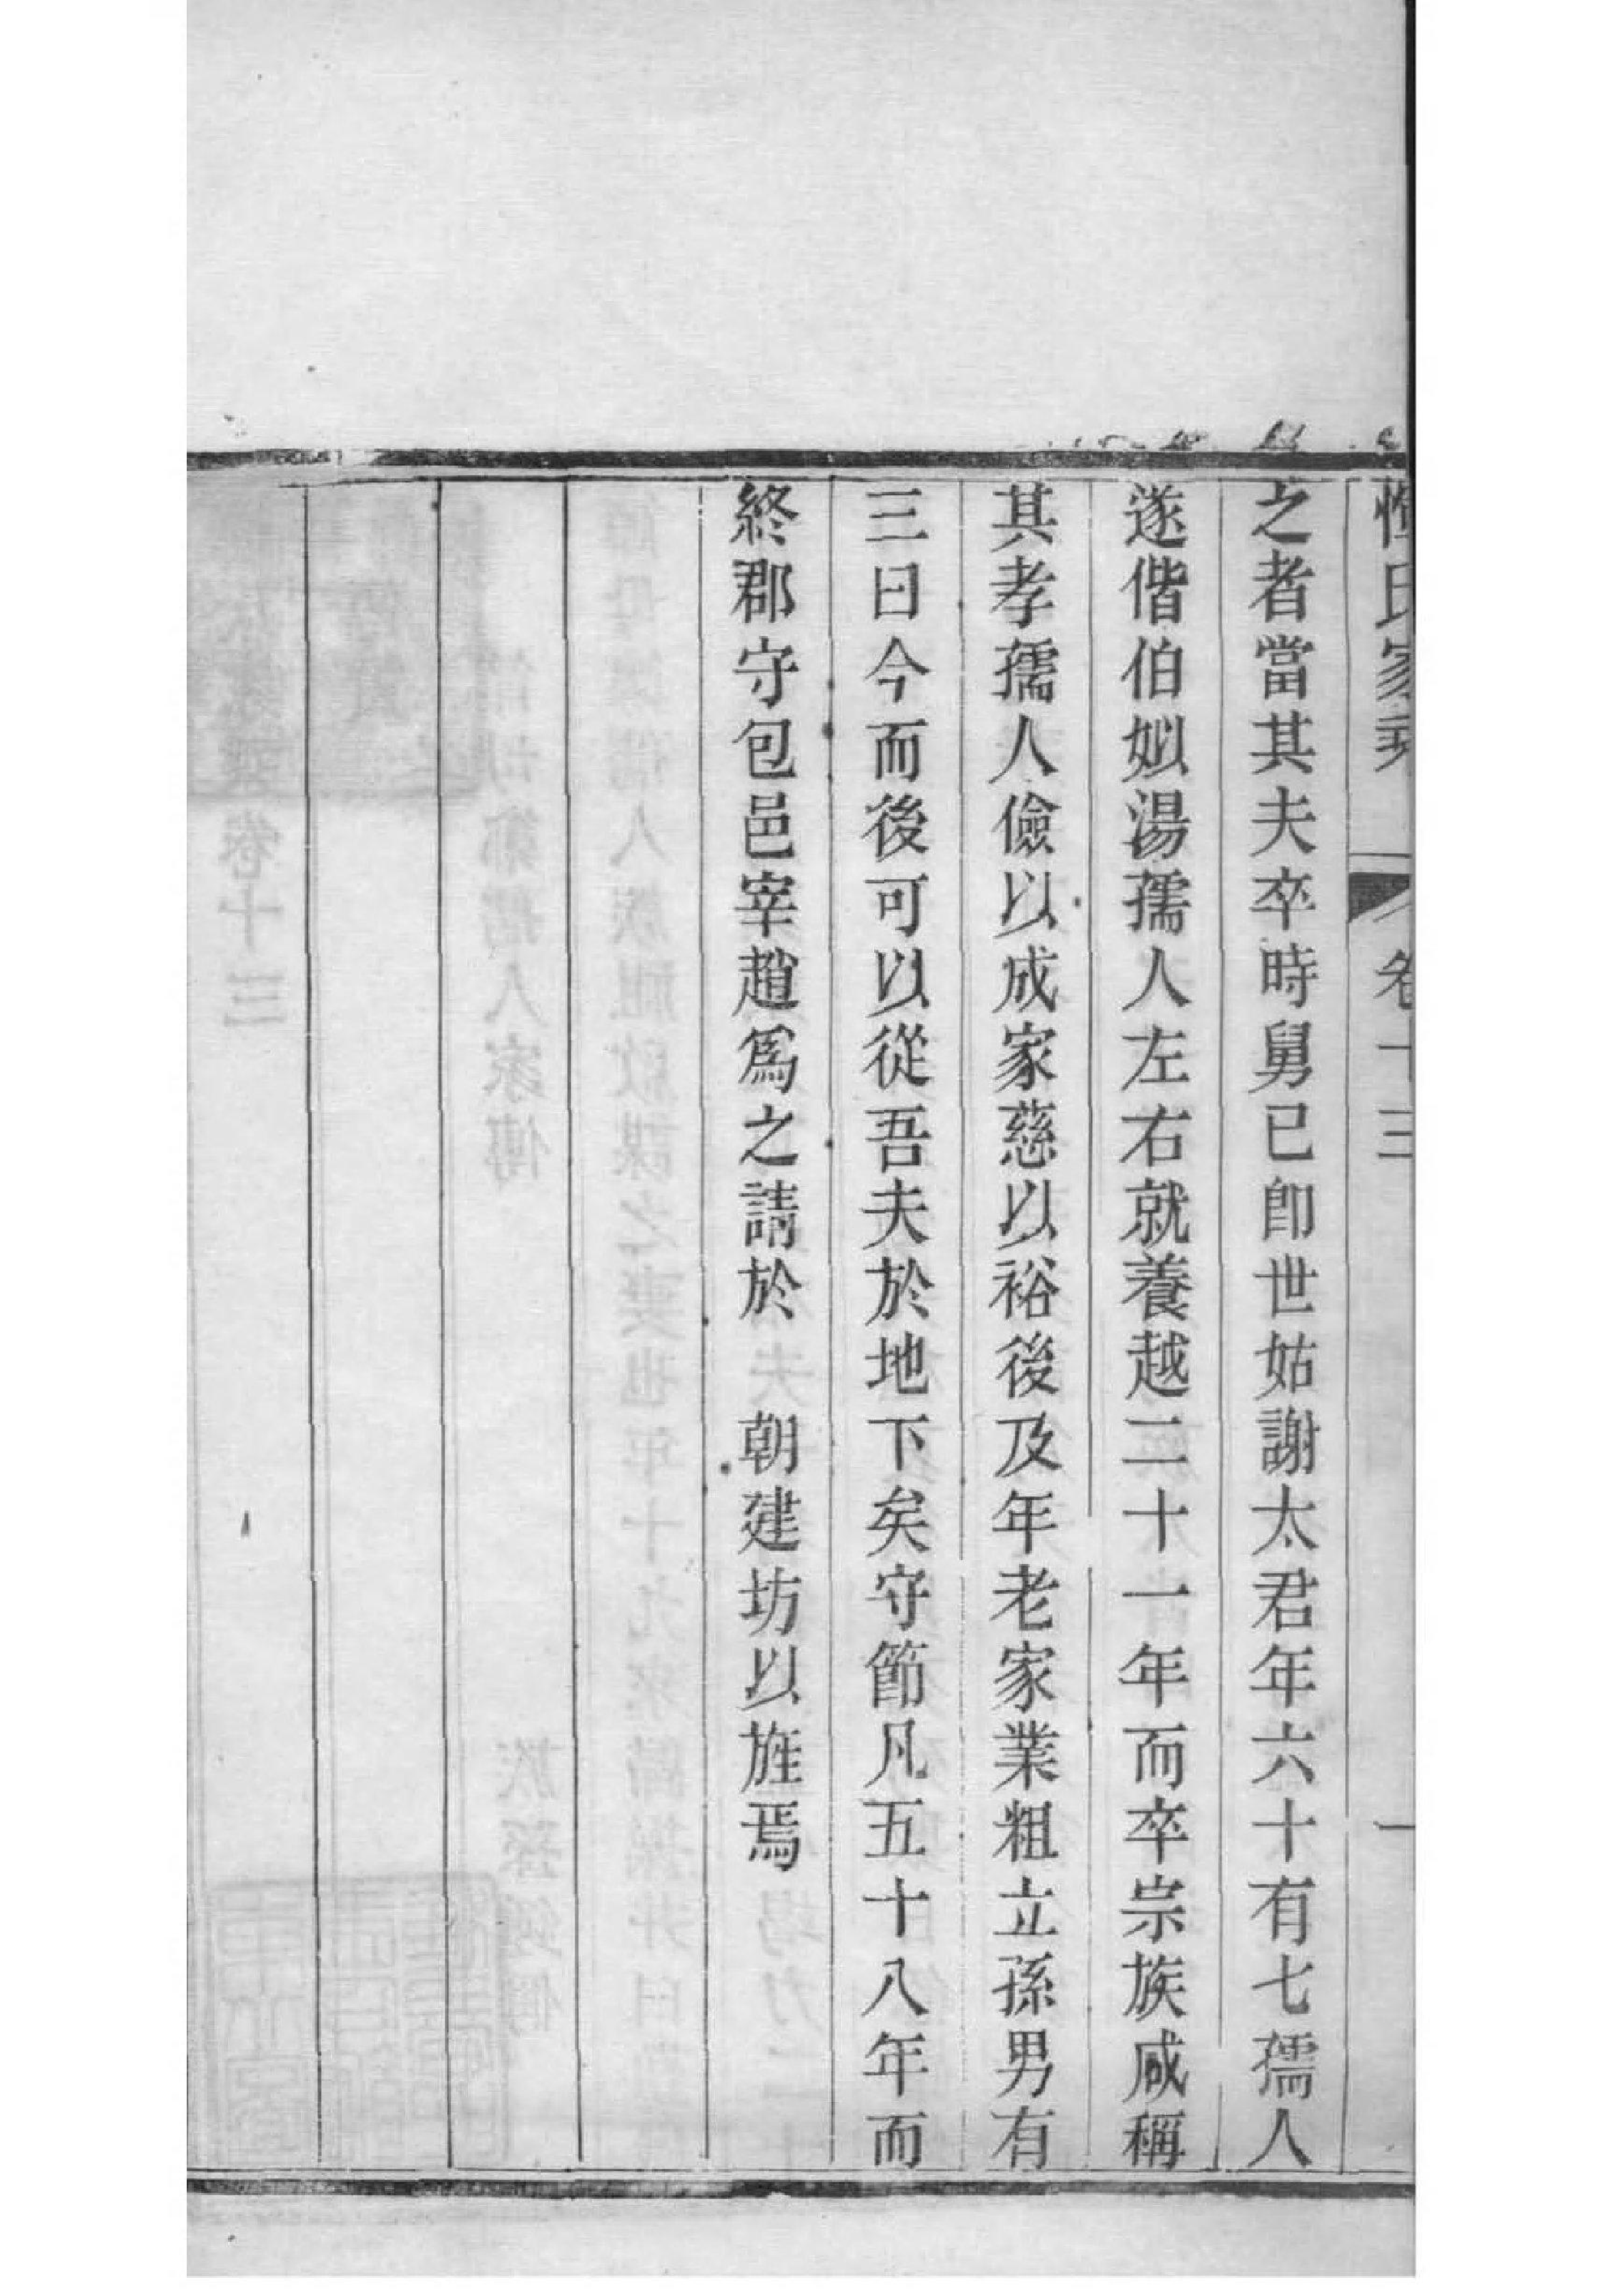 惲氏家乘 卷十三 一
之者當其夫卒時舅已卽世姑謝太君年六十有七孺人
遂偕伯姒湯孺人左右就養越二十一年而卒宗族咸稱
其孝孺人儉以成家慈以裕後及年老家業粗立孫男有
三曰今而後可以從吾夫於地下矣守節凡五十八年而
終郡守包邑宰趙爲之請於 朝建坊以旌焉